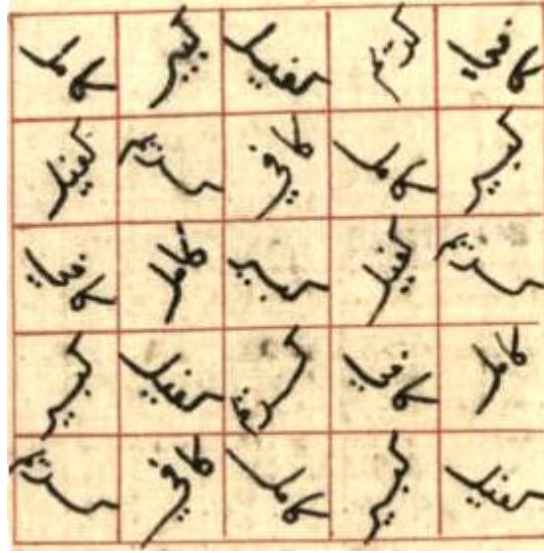 كافي كريم كفيل كبير كامل
كبير كامل كافي كريم كفيل
كريم كفيل كبير كامل كافي
كامل كافي كريم كفيل كبير
كفيل كبير كامل كافي كريم